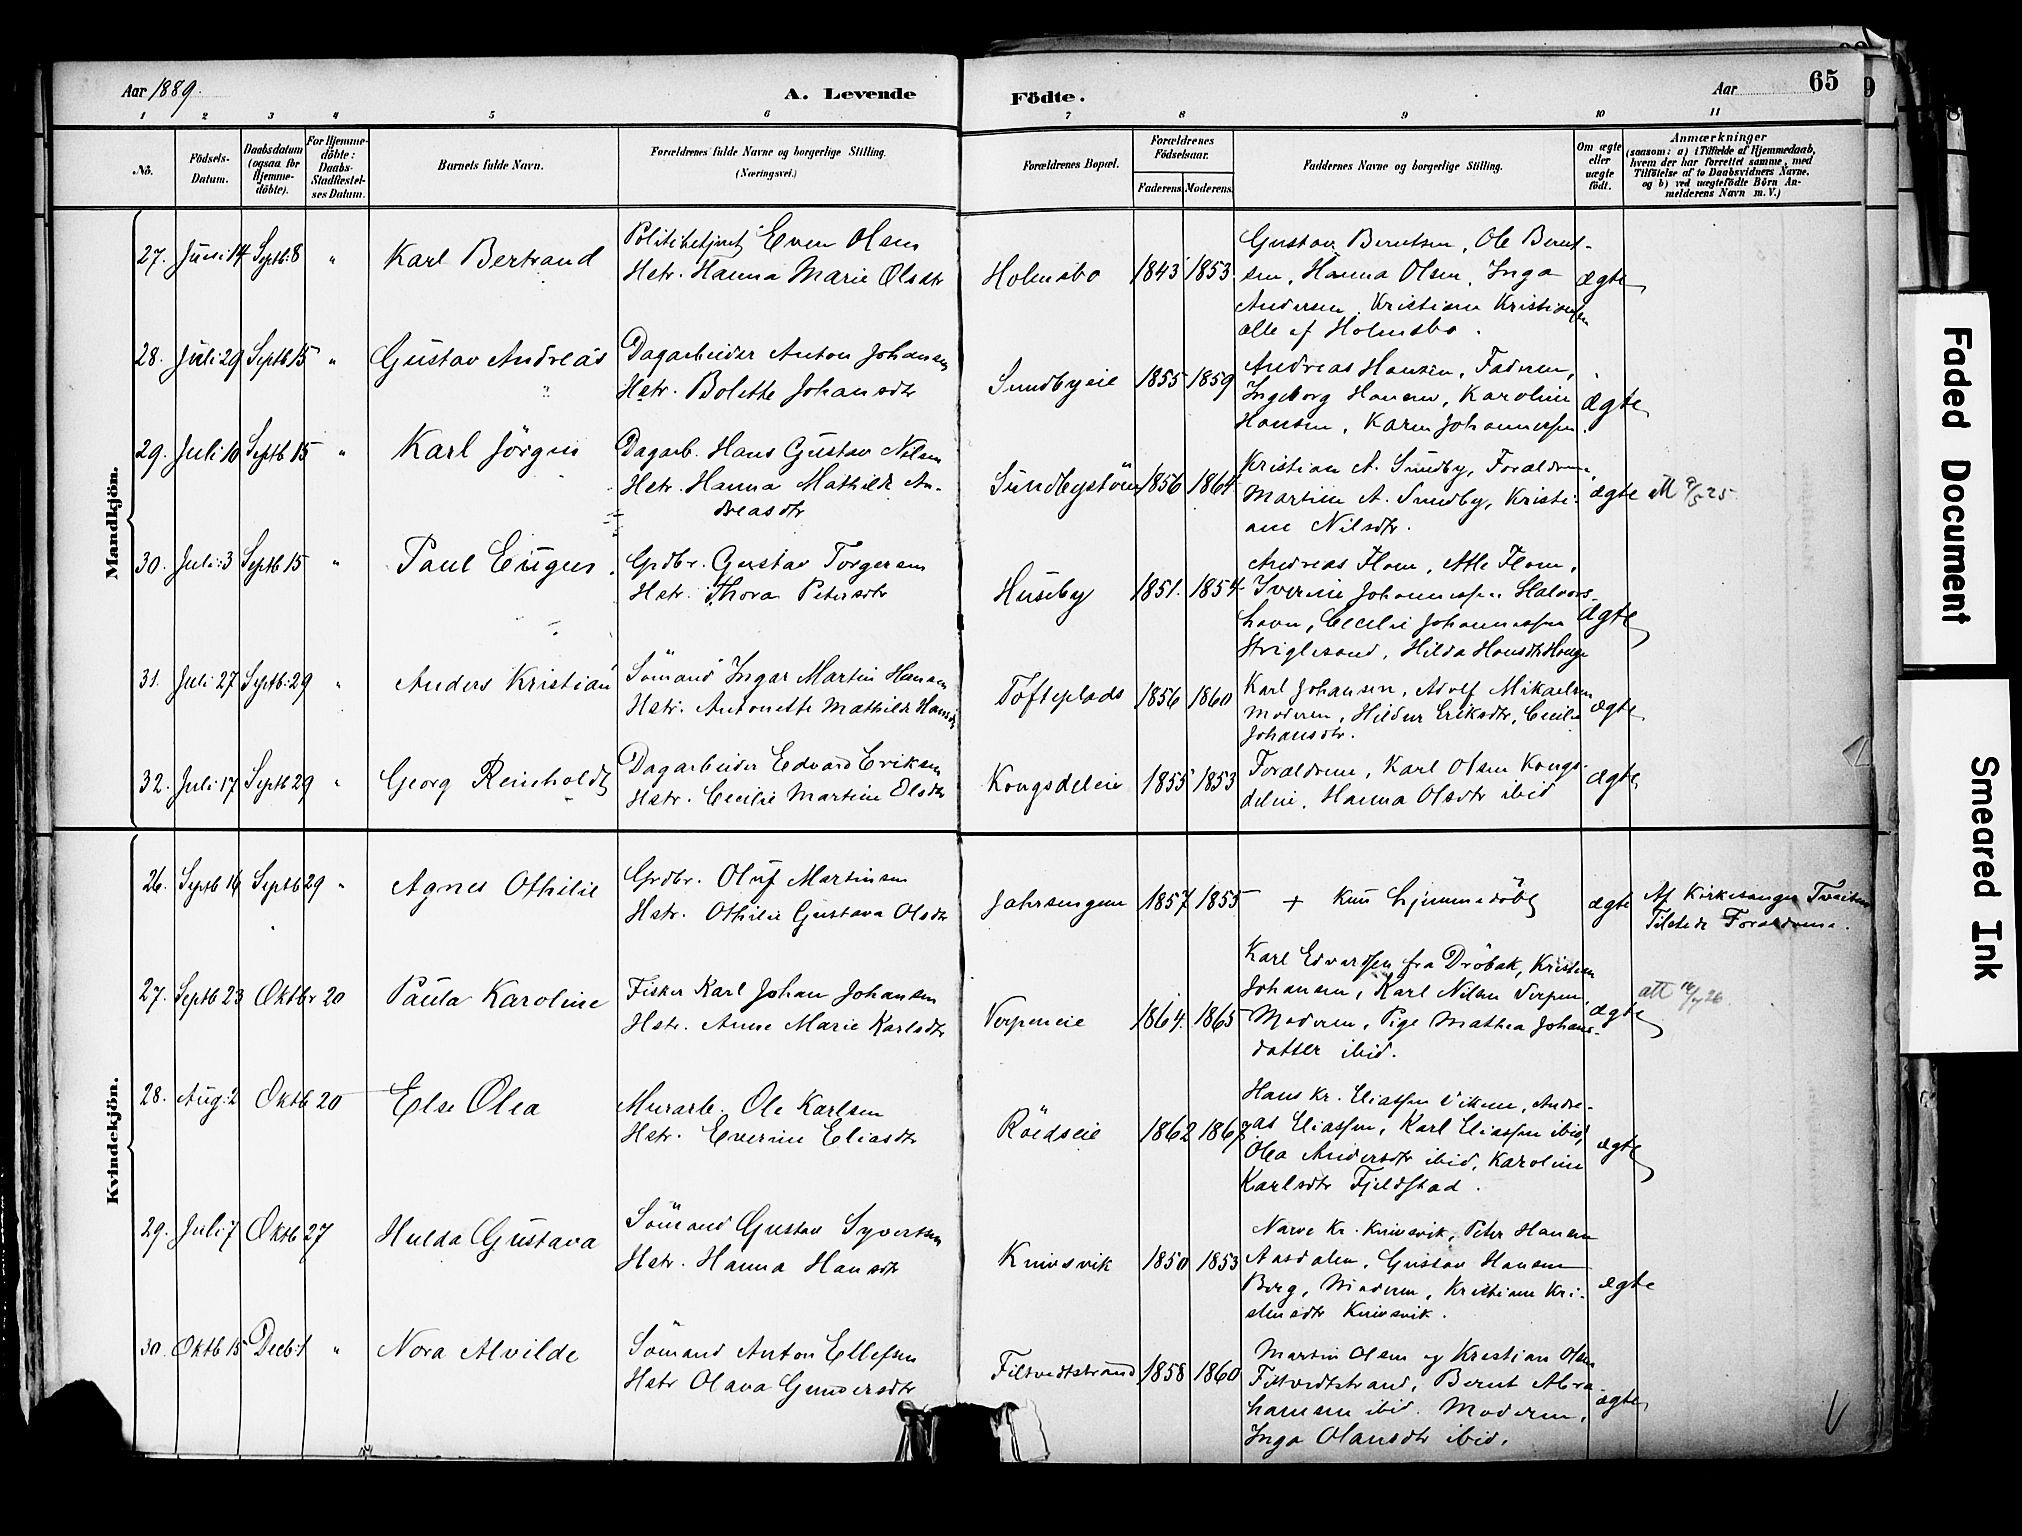 Aar 1889.
A. Levende
Födte.
Aar
65
9
1 2 3 4 5 6 7 8 9 10 11
No.
Födsels-
Datum.
Daabsdatum
(ogsaa for
Hjemme-
döbte).
For Hjemme-
döbte:
Daabs-
Stadfæstel-
ses Datum.
Barnets fulde Navn.
Forældrenes fulde Navne og borgerlige Stilling.
(Næringsvei.)
Forældrenes Bopæl.
Forældrenes
Födselsaar.
Faderens
Moderens.
Faddernes Navne og borgerlige Stilling.
Om ægte
eller
uægte
födt.
Anmærkninger
(saasom: a) i Tilfælde af Hjemmedaab,
hvem der har forrettet samme, med
Tilföielse af to Daabsvidners Navne,
og b) ved uægtefödte Börn An-
melderens Navn m. V.)
Mandkjön.
27. Juni 14 Septb: 8 " Karl Bertrand
Politibetjent Even Olsen
Hstr. Hanna Marie Olsdtr
Holmsbo 1843 1853
Gustav Berntsen, Ole Bernt-
sen, Hanna Olsen, Inga
Andersen, Kristian Kristiansen
alle af Holmsbo.
ægte
28. Juli 29 Septb 15 " Gustav Andreas
Dagarbeider Anton Johansen
Hstr. Bolette Johansdtr
Sundbyeie 1855 1859
Andreas Hansen, Faderen,
Ingeborg Hansen, Karoline
Hansen, Karen Johannessen.
ægte
29. Juli 10 Septb 15 " Karl Jörgen
Dagarb. Hans Gustav Nilsen
Hstr. Hanna Mathilde An-
dreasdtr
Sundbystöen 1856 1864
Kristian A. Sundby, Forældrene
Martin A. Sundby, Kristi-
ane Nilsdtr.
ægte
30. Juli 3 Septb 15 " Paul Eugen
Grdbr. Gustav Torgersen
Hstr. Thora Petersdtr
Huseby 1851. 1854
Andreas Flom, Atle Flom,
Iverine Johannessen Halvors-
havn, Cecilie Johannessen
Striglesand, Hilda Hansdtr Hauge
ægte
31. Juli 27 Septb. 29 " Anders Kristian
Sömand Ingar Martin Hansen
Hstr. Antonette Mathilde Hansdtr
Tofteplads 1856 1860
Karl Johansen, Adolf Mikaelsen
Moderen, Hildur Eriksdtr, Cecilie
Johansdtr.
ægte
32. Juli 17 Septb 29 " Georg Reinholdt
Dagarbeider Edvard Eriksen
Hstr. Cecilie Martine Olsdtr
Kongsdeleie 1855 1853
Forældrene, Karl Olsen Kongs-
deleie, Hanna Olsdtr ibid
ægte
Kvindekjön.
26. Septb 16 Septb 29 " Agnes Othilie
Grdbr. Oluf Martinsen
Hstr. Othilie Gustava Olsdtr
Jahrsengen 1857 1855
+ Kun hjemmedöbt
ægte
Af Kirkesanger Tveiten
Tilstede Forældrene.
27. Septb 23 Oktbr 20 Paula Karoline
Fisker Karl Johan Johansen
Hstr. Anne Marie Karlsdtr
Verpeneie 1864. 1865
Karl Edvardsen fra Dröbak, Kristian
Johansen, Karl Nilsen Verpen,
Moderen, Pige Mathea Johans-
datter ibid.
ægte
28. Aug: 2 Oktb 20 Else Olea
Murarb. Ole Karlsen
Hstr. Everine Eliasdtr
Röedseie 1862 1867
Hans Kr. Eliassen Viken, Andre-
as Eliassen, Karl Eliassen ibid,
Olea Andersdtr ibid, Karoline
Karlsdtr Fjeldstad.
ægte
29. Juli 7 Oktb 27 Hulda Gustava
Sömand Gustav Syvertsen
Hstr. Hanna Hansdtr
Knivsvik 1850 1853
Narve Kr. Knivsvik, Peter Hansen
Aasdalen, Gustav Hansen
Berg, Moderen, Kristiane Kri-
stensdtr Knivsvik.
ægte
30. Oktb 15 Decb: 1 " Nora Alvilde
Sömand Anton Ellefsen
Hstr Olava Gundersdtr
Filtvedtstrand 1858 1860
Martin Olsen og Kristian Olsen
Filtvedtstrand, Bernt Abra-
hamsen ibid. Moderen,
Inga Olausdtr ibid.
ægte
Faded Document
Smeared Ink